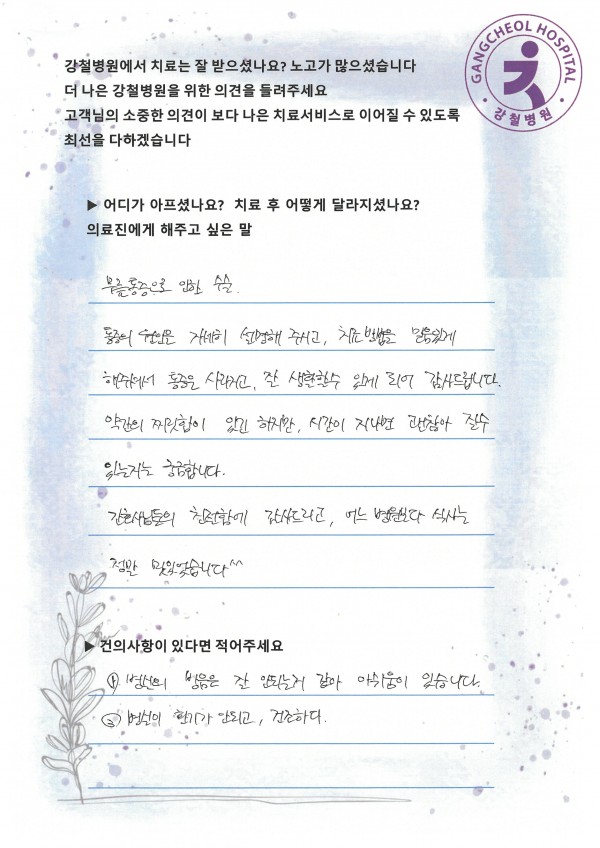 강철병원에서 치료는 잘 받으셨나요? 노고가 많으셨습니다
더 나은 강철병원을 위한 의견을 들려주세요
고객님의 소중한 의견이 보다 나은 치료서비스로 이어질 수 있도록
최선을 다하겠습니다
GANGCHEOL HOSPITAL
강철병원
▶ 어디가 아프셨나요? 치료 후 어떻게 달라지셨나요?
의료진에게 해주고 싶은 말
무릎통증으로 인한 수술.
통증의 원인은 자세히 설명해 주시고, 치료방법을 믿음있게
해주셔서 통증은 사라지고, 잘 생활할수 있게 되어 감사드립니다.
약간의 찌릿함이 있긴 하지만, 시간이 지나면 괜찮아 질수
있는지는 궁금합니다.
간호사님들의 친절함에 감사드리고, 어느 병원보다 식사는
정말 맛있었습니다^^
▶ 건의사항이 있다면 적어주세요
① 병실의 방음은 잘 안되는거 같아 아쉬움이 있습니다.
② 병실의 환기가 안되고, 건조하다.